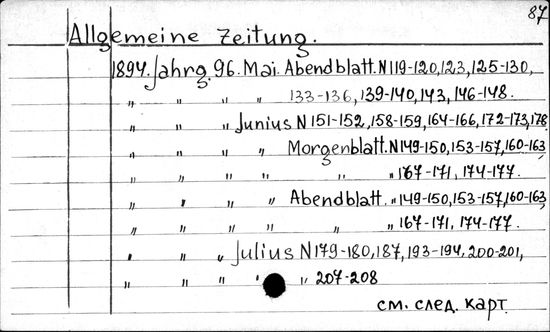 87
Allgemeine Zeitung.
1894. Jahrg. 96. Mai. Abendblatt. N 119-120, 123, 125-130,
" " " " 133-136, 139-140, 143, 146-148.
" " " Junius N 151-152, 158-159, 164-166, 172-173, 178
" " " " Morgenblatt. N 149-150, 153-157, 160-163
" " " " " " 167-171, 174-177.
" " " " Abendblatt. " 149-150, 153-157, 160-163
" " " " " " 167-171, 174-177.
" " " Julius N 179-180, 187, 193-194, 200-201,
" " " " " 207-208
см. след. карт.